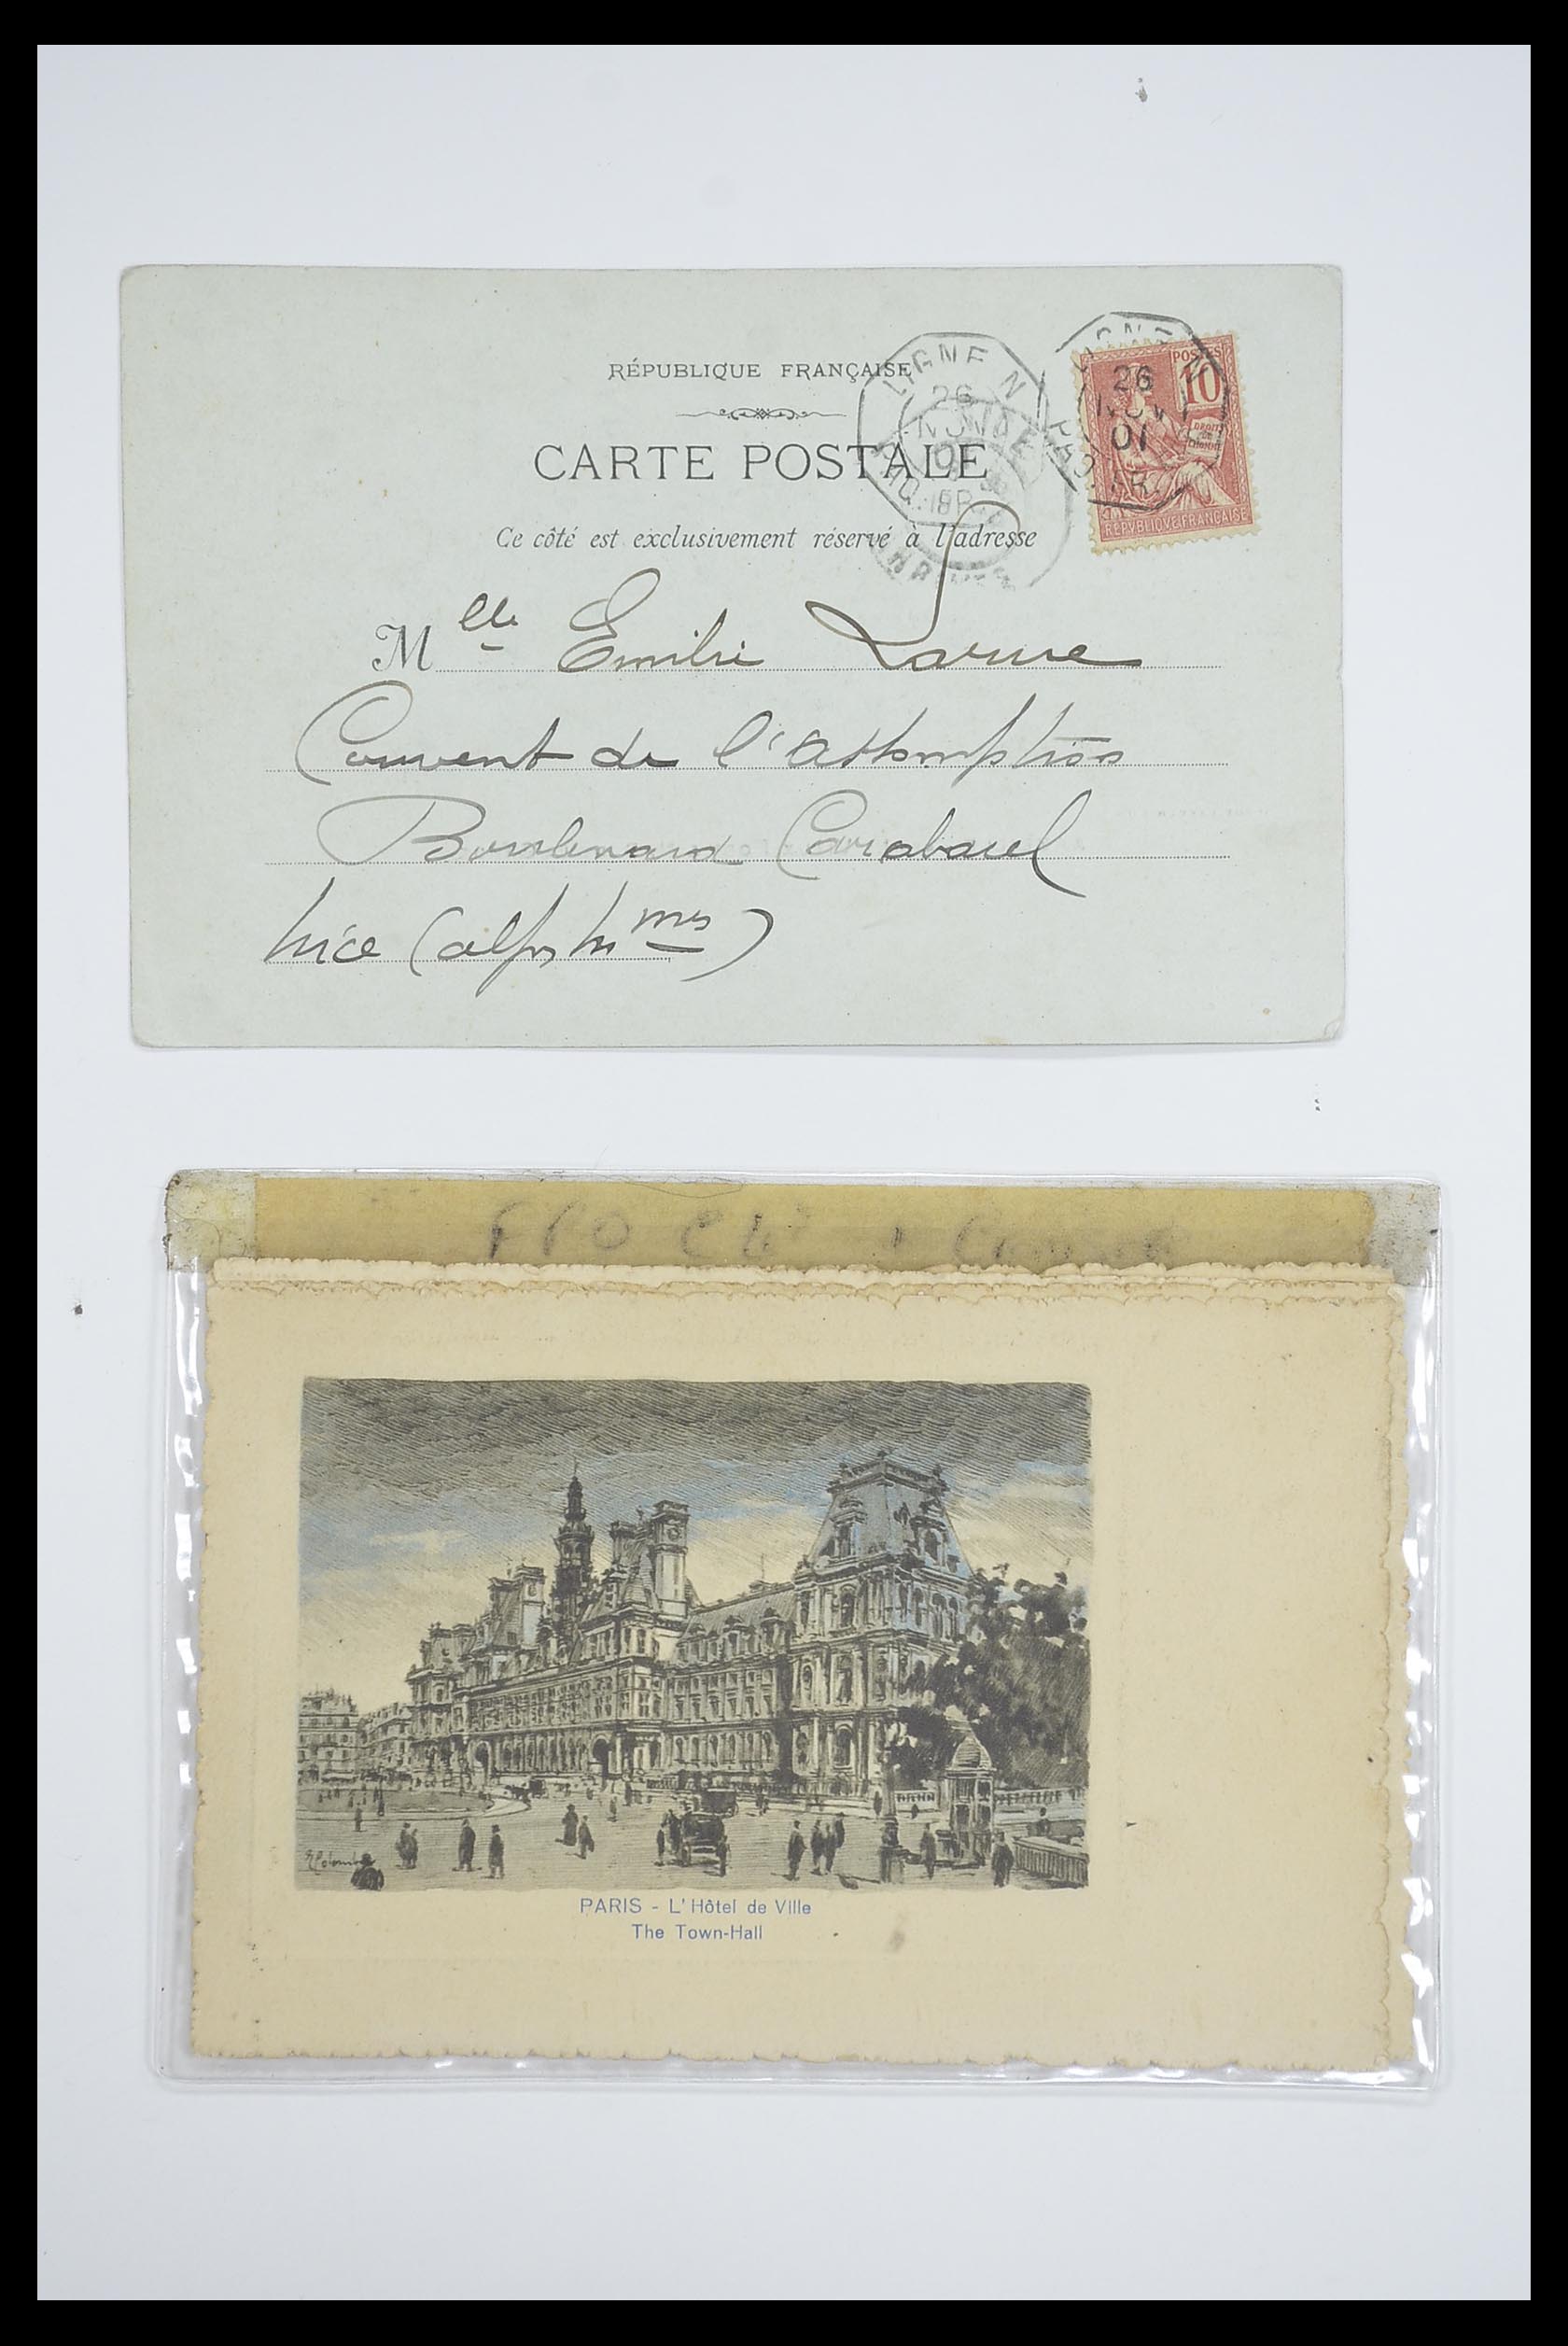 RÉPUBLIQUE FRANÇAISE
CARTE POSTALE
Ce côté est exclusivement réservé à l'adresse
LIGNE N
26
NOV
POSTES
10
26
NOV
01
DROITS
DE
L'HOMME
REPVBLIQVE FRANÇAISE
Mlle Emilie
Couvent de l'assomption
Boulevard Carabacel
Nice (alpes mmes)
FPO
PARIS - L'Hôtel de Ville
The Town-Hall